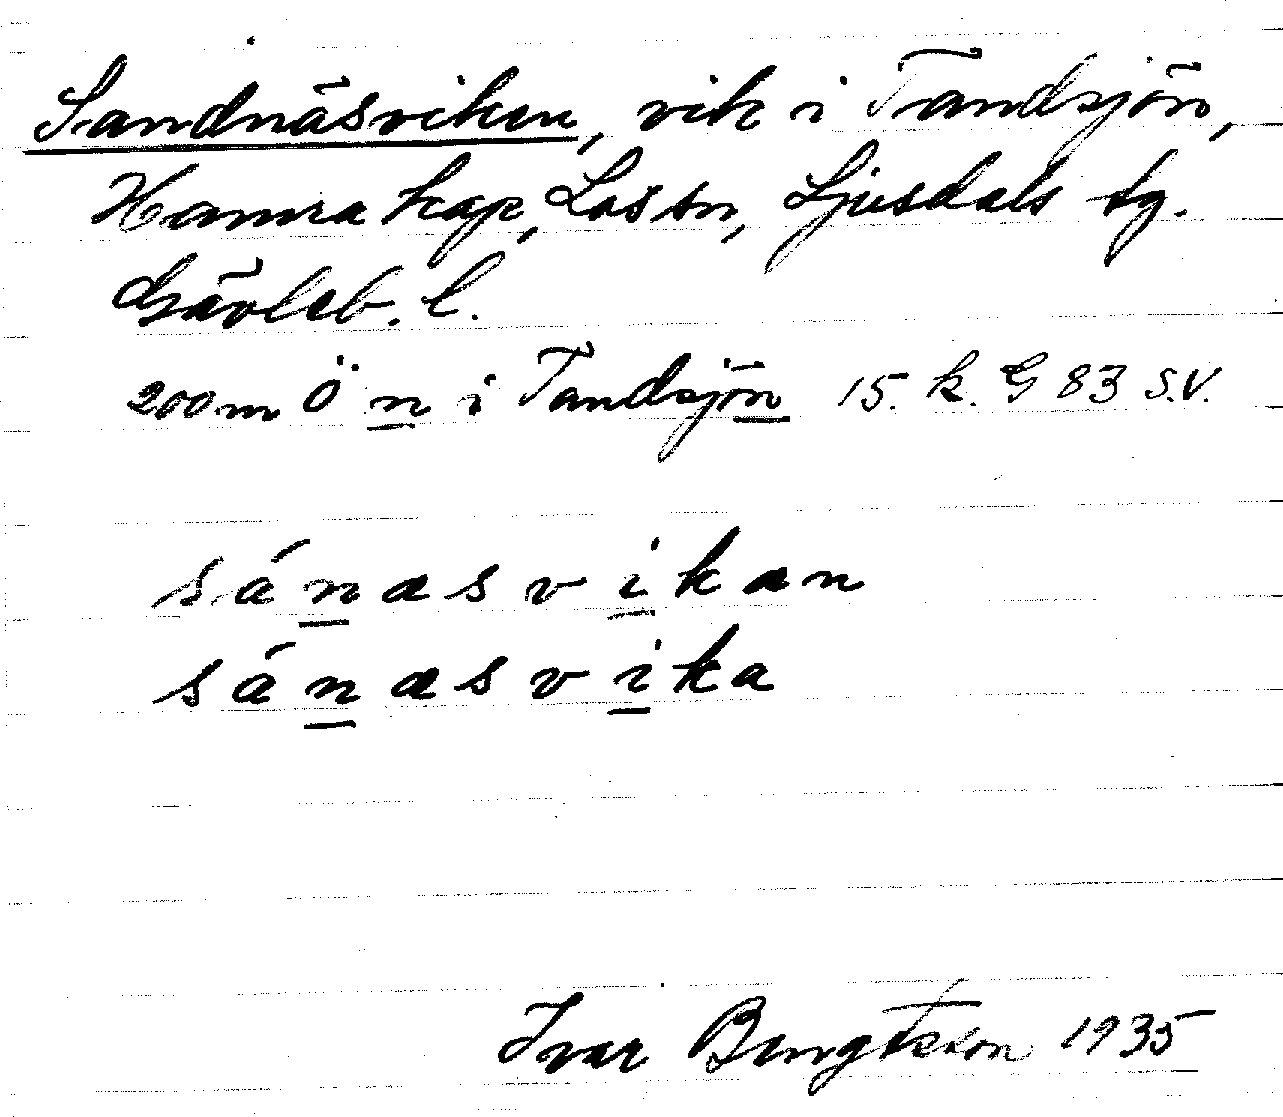 Sandnäsviken, vik i Tandsjön,
Hamra kap, Los sn, Ljusdals tg.
Gävleb. l.
200 m Ö n i Tandsjön 15. k. G 83 S.V.
sánæsvikæn
sánæsvika
Ivar Bengtsson 1935